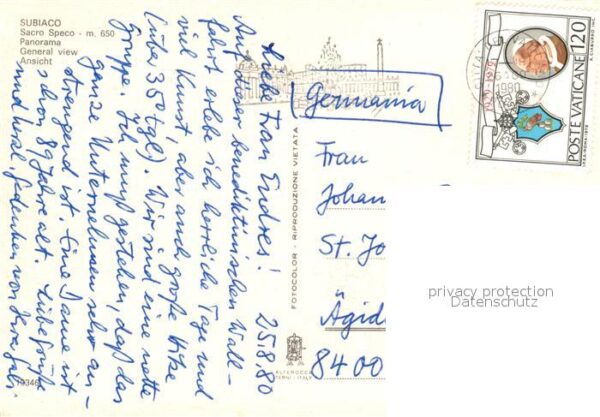 SUBIACO
Sacro Speco - m. 650
Panorama
General view
Ansicht
25.8.80
Liebe Frau Endres!
Auf dieser benediktinischen Wall-
fahrt erlebe ich herrliche Tage und
viel Kunst, aber auch große Hitze
(über 35° tgl). Wir sind eine nette
Gruppe. Ich muß gestehen, daß das
ganze Unternehmen sehr an-
strengend ist. Eine Dame ist
schon 89 Jahre alt. Liebe Grüße
und viel Gedenken von
FOTOCOLOR - RIPRODUZIONE VIETATA
Germania
Frau
Johan
St. Jo
Ägid
8400
POSTE VATICANE 120
1980
privacy protection
Datenschutz
ALTEROCCA
TERNI - ITALY